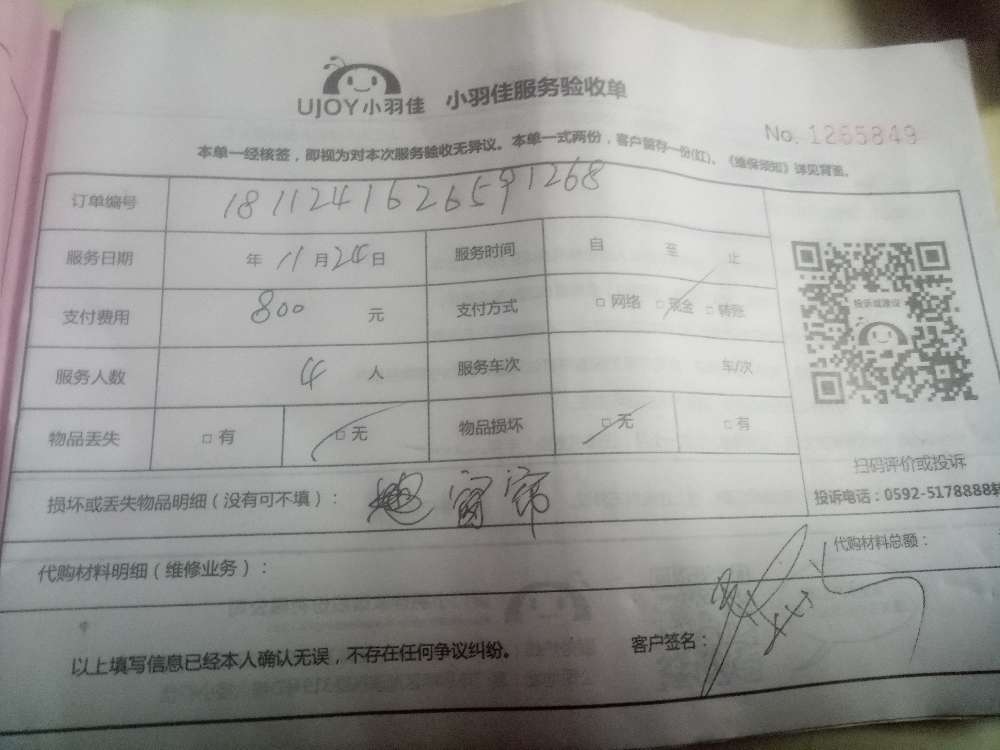 UJOY小羽佳 小羽佳服务验收单
No. 1265849
本单一经核签，即视为对本次服务验收无异议。本单一式两份，客户留存一份(红)。《维保须知》详见背面。
订单编号 1811241626591268
服务日期 年 11 月 24 日 服务时间 自 至 止
支付费用 800 元 支付方式 □ 网络 □ 现金 □ 转账
投诉或建议
服务人数 4 人 服务车次 车/次
物品丢失 □ 有 □ 无 物品损坏 □ 无 □ 有
扫码评价或投诉
损坏或丢失物品明细（没有可不填）： 窗帘
投诉电话：0592-5178888转
代购材料明细（维修业务）： 代购材料总额：
以上填写信息已经本人确认无误，不存在任何争议纠纷。 客户签名：